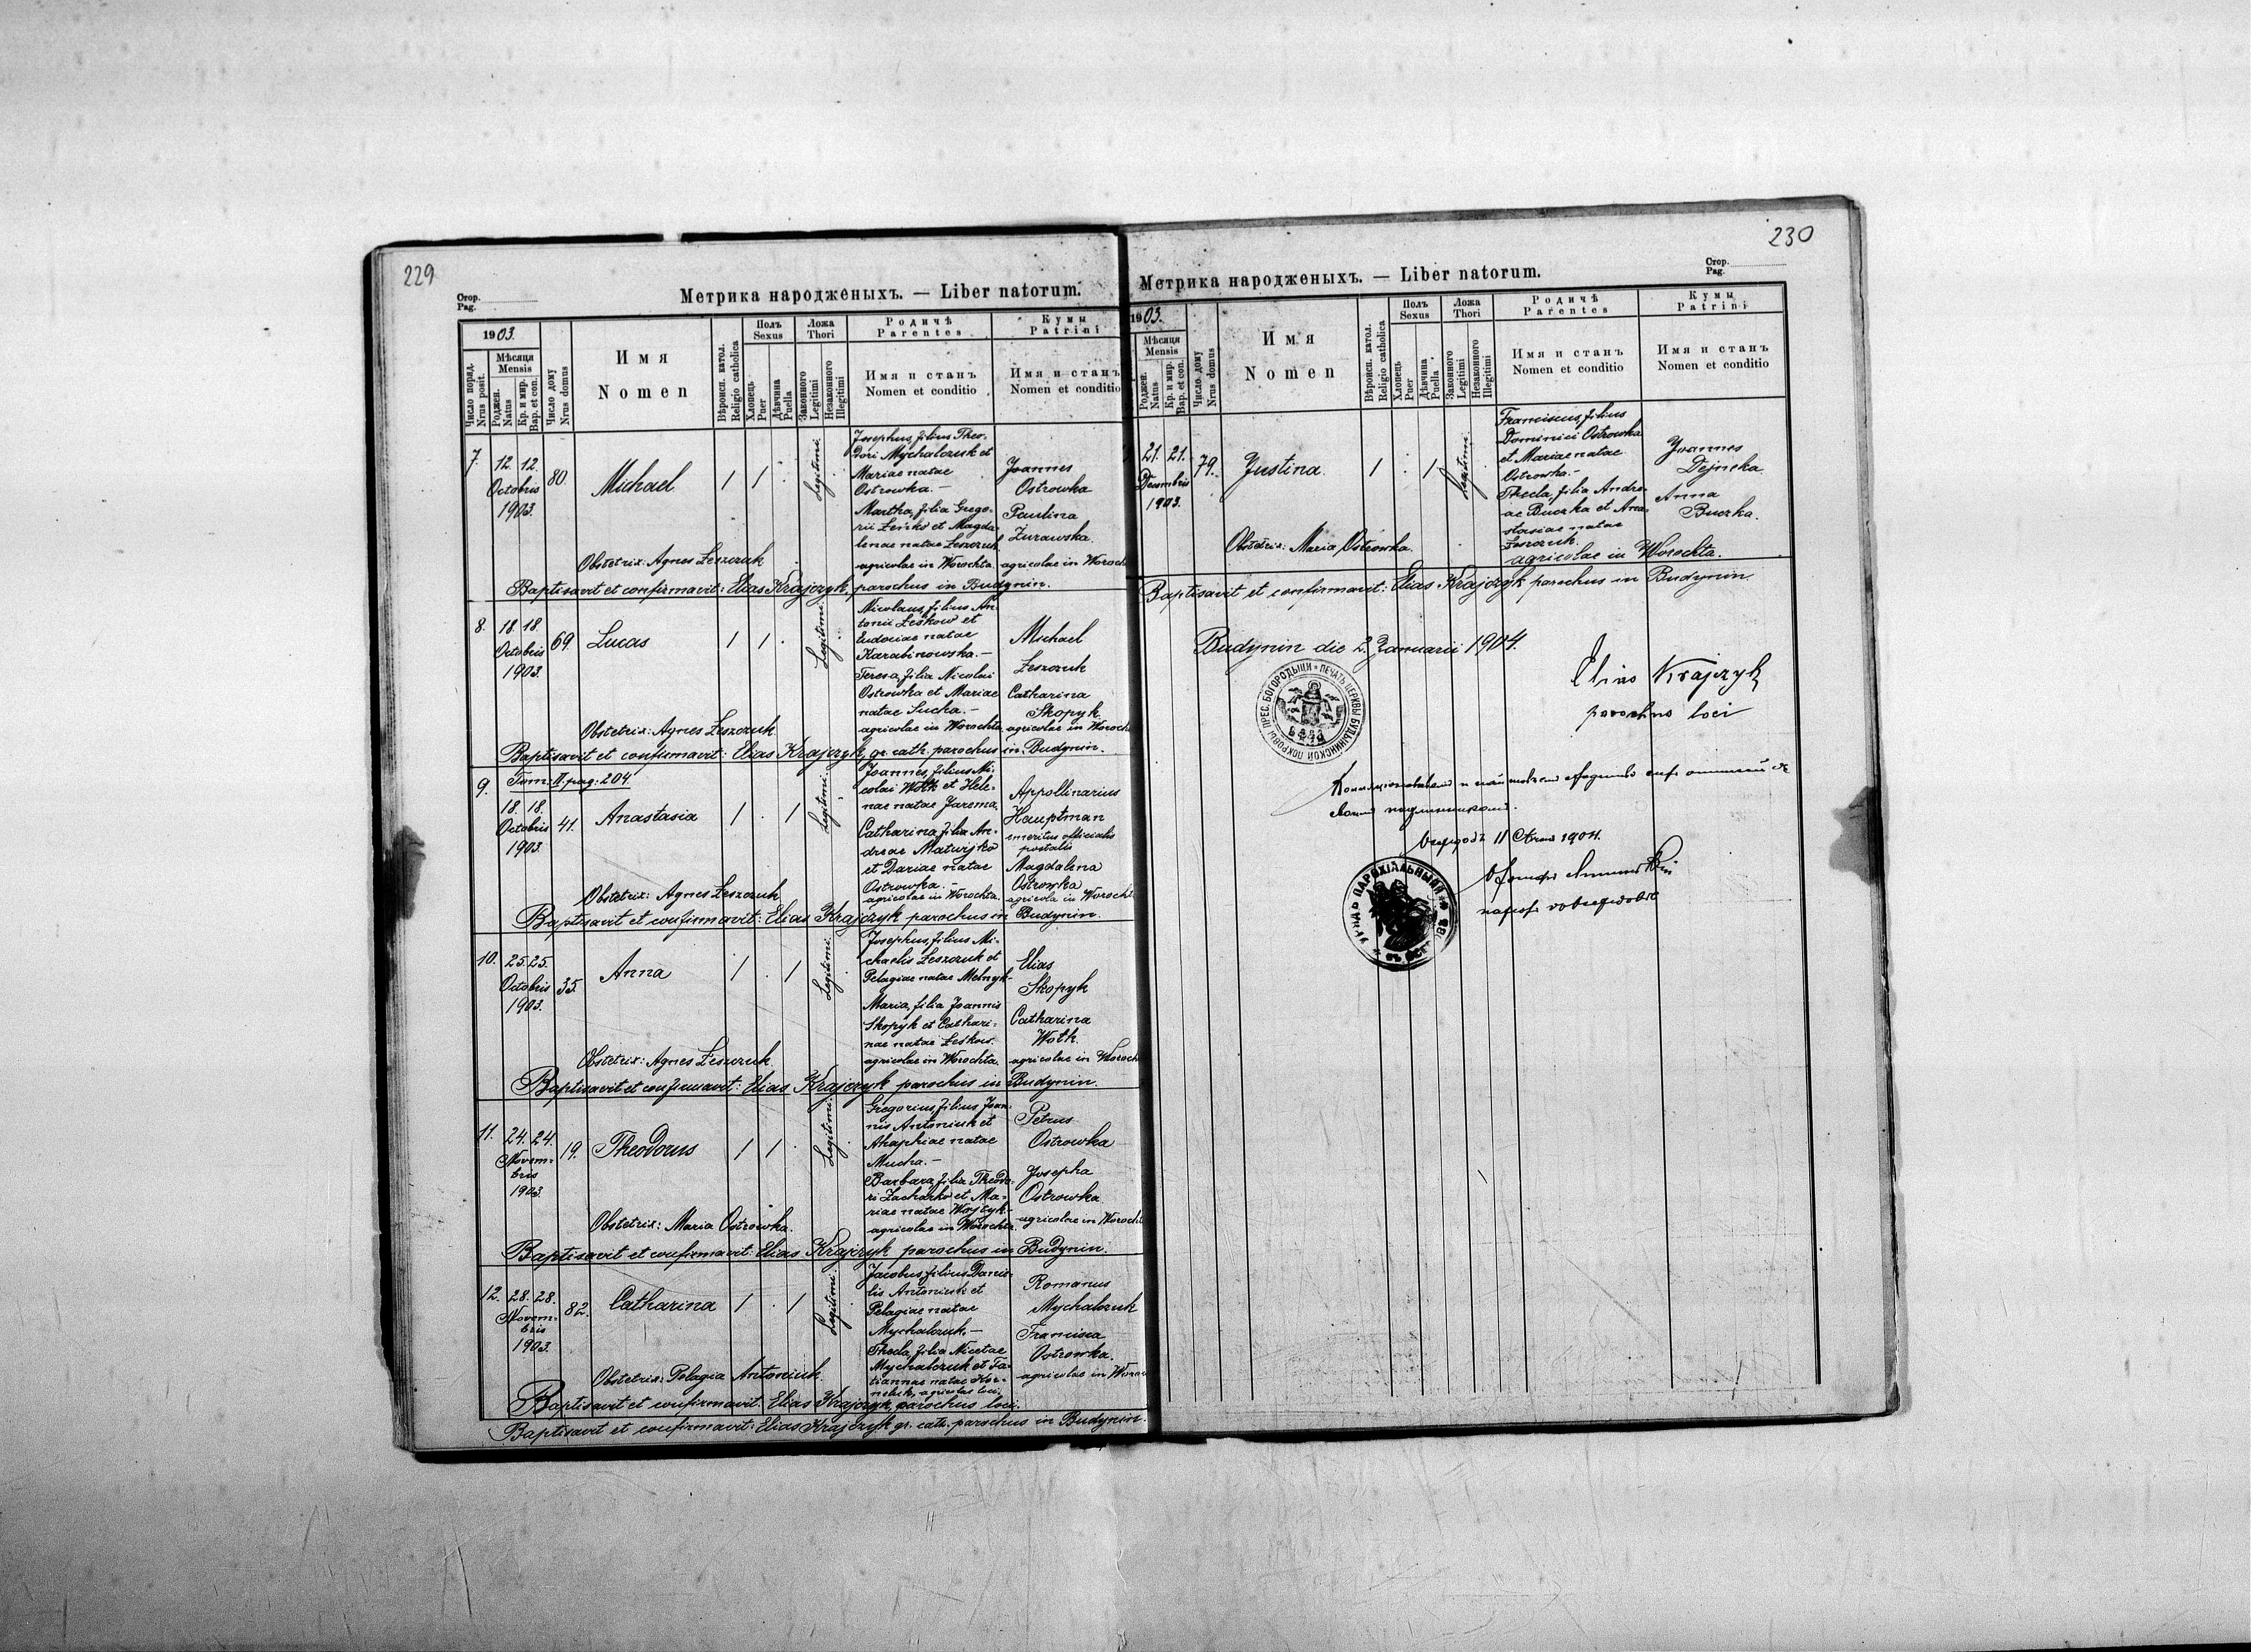 229
Стор.
Pag.
Метрика народженыхъ. — Liber natorum.
1903.
Число поряд.
Nrus posit.
Мѣсяця
Mensis
Роджен.
Natus
Кр. и мир.
Bap. et con.
Число дому
Nrus domus
Имя
Nomen
Вѣроисп. катол.
Religio catholica
Полъ
Sexus
Хлопець
Puer
Дѣвчина
Puella
Ложа
Thori
Законного
Legitimi
Незаконного
Illegitimi
Родичѣ
Parentes
Имя и станъ
Nomen et conditio
Кумы
Patrini
Имя и станъ
Nomen et conditio
7. 12. 12.
Octobris
1903.
80.
Michael
1 1 .
Legitimi.
Josephus, filius Theo-
dori Mychalczuk et
Mariae natae
Ostrowka.—
Martha, filia Grego-
rii Leńko et Magda-
lenae natae Leszczuk
agricolae in Worochta.
Joannes
Ostrowka
Paulina
Żurawska.
agricolae in Woroch
Obstetrix: Agnes Leszczuk
Baptisavit et confirmavit: Elias Krajczyk, parochus in Budynin.
8. 18. 18.
Octobris
1903.
69.
Lucas
1 1 .
Legitimi.
Nicolaus, filius An-
tonii Leśkow et
Eudociae natae
Karabinowska.—
Teresa, filia Nicolai
Ostrowka et Mariae
natae Sucha.—
agricolae in Worochta
Michael
Leszczuk
Catharina
Skopyk.
agricolae in Woroch
Obstetrix: Agnes Leszczuk
Baptisavit et confirmavit: Elias Krajczyk, gr. cath. parochus in Budynin.
9. Tom: II. pag: 204
18. 18.
Octobris
1903.
41.
Anastasia
1 . 1
Legitimi.
Joannes, filius Mi-
colai Wotk et Hele-
nae natae Jarema,
Catharina, filia An-
dreae Matwijko
et Dariae natae
Ostrowka.—
agricolae in Worochta.
Appollinarius
Hauptman
emeritus officialis
postalis
Magdalena
Ostrowka
agricola in Woroch
Obstetrix: Agnes Leszczuk
Baptisavit et confirmavit: Elias Krajczyk parochus in Budynin.
10. 25. 25.
Octobris
1903.
35.
Anna
1 . 1
Legitimi.
Josephus, filius Mi-
chaelis Leszczuk et
Pelagiae natae Melnyk-
Maria, filia Joannis
Skopyk et Cathari-
nae natae Leśkow.
agricolae in Worochta.
Elias
Skopyk
Catharina
Wotk.
agricolae in Woroch
Obstetrix: Agnes Leszczuk
Baptisavit et confirmavit: Elias Krajczyk parochus in Budynin.
11. 24. 24.
Novem-
bris
1903.
19.
Theodorus
1 1 .
Legitimi.
Gregorius, filius Joan-
nis Antoniuk et
Ahaphiae natae
Mucha.—
Barbara, filia Theodo-
ri Zacharko et Ma-
riae natae Wojtyk-
agricolae in Worochta.
Petrus
Ostrowka
Josepha
Ostrowka.
agricolae in Woroch
Obstetrix: Maria Ostrowka.
Baptisavit et confirmavit: Elias Krajczyk parochus in Budynin.
12. 28. 28.
Novem-
bris
1903.
82.
Catharina
1 . 1
Legitimi.
Jacobus, filius Danie-
lis Antoniuk et
Pelagiae natae
Mychalczuk.—
Thecla, filia Nicetae
Mychalczuk et Ta-
tiannae natae Kor-
agricolae loci.
Romanus
Mychalczuk
Francisca
Ostrowka.
agricolae in Woroch
Obstetrix: Pelagia Antoniuk.
Baptisavit et confirmavit. Elias Krajczyk, parochus loci.
Baptisavit et confirmavit: Elias Krajczyk gr. cath. parochus in Budynin.
230
Стор.
Pag.
Метрика народженыхъ. — Liber natorum.
1903.
Мѣсяця
Mensis
Роджен.
Natus
Кр. и мир.
Bap. et con.
Число дому
Nrus domus
Имя
Nomen
Вѣроисп. катол.
Religio catholica
Полъ
Sexus
Хлопець
Puer
Дѣвчина
Puella
Ложа
Thori
Законного
Legitimi
Незаконного
Illegitimi
Родичѣ
Parentes
Имя и станъ
Nomen et conditio
Кумы
Patrini
Имя и станъ
Nomen et conditio
21. 21.
Decembris
1903.
79.
Justina.
1 . 1
Legitimi.
Franciscus, filius
Dominici Ostrowka
et Mariae natae
Ostrowka.—
Thecla, filia Andre-
ae Buczka et Ana-
stasiae natae
Leszczuk.
agricolae in Worochta.
Joannes
Dejneka.
Anna
Buczka.
Obstetrix: Maria Ostrowka.
Baptisavit et confirmavit: Elias Krajczyk parochus in Budynin.
Budynin die 2. Januarii 1904.
Elias Krajczyk
parochus loci
ПЕЧАТЬ ЦЕРКВЫ БУДЫНИНСКОЙ ПОКРОВЫ ПРЕС. БОГОРОДЫЦИ
11 1904.
УРЯДЪ ПАРОХІАЛЬНЫЙ